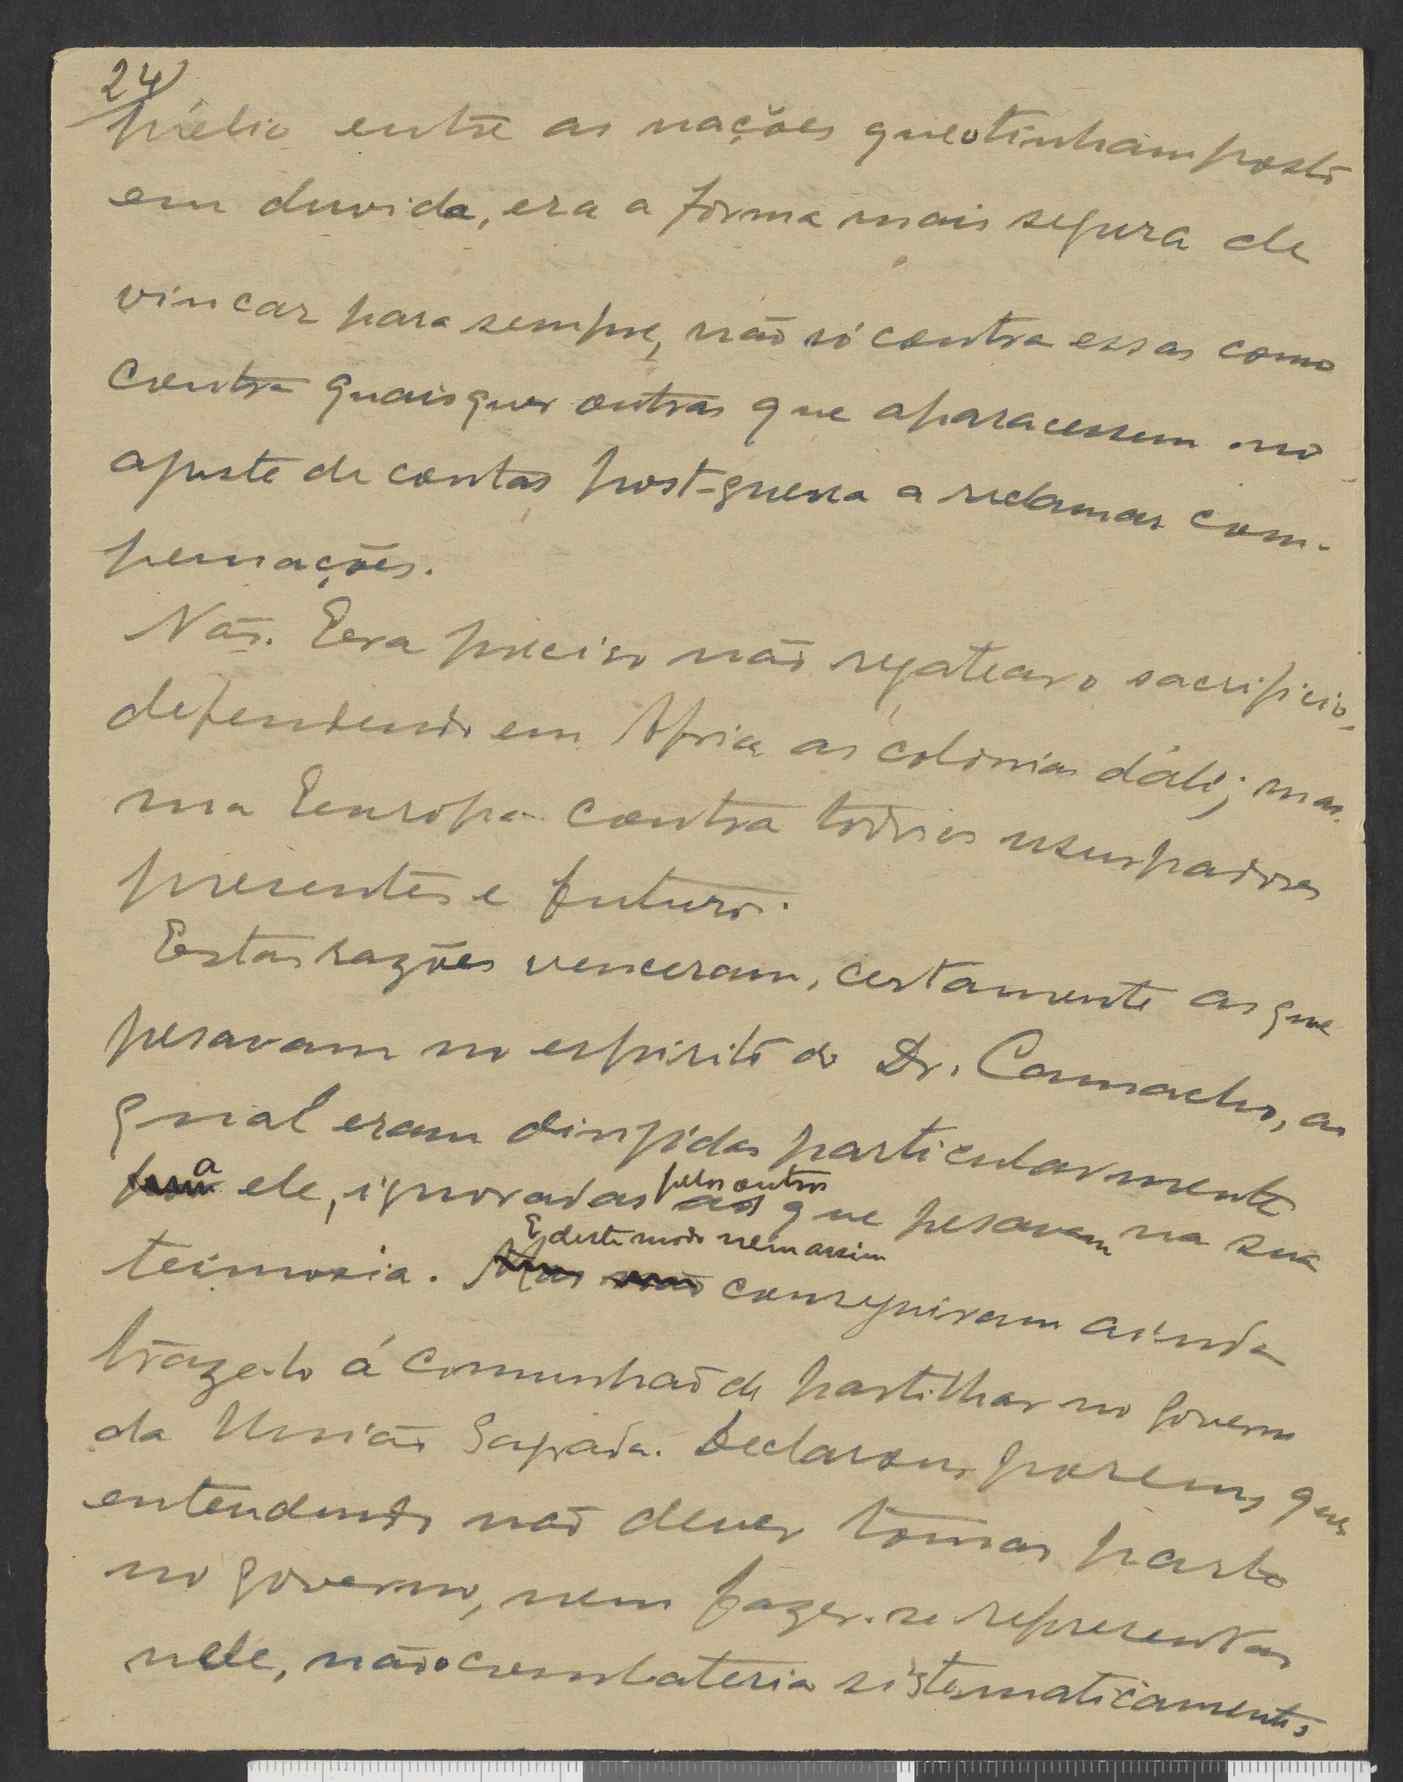 24)
prélio entre as nações que o tinham posto
em duvida, era a forma mais segura de
vincar para sempre, não só contra essas como
contra quaisquer outras que aparacessem no
ajuste de contas post-guerra a reclamar com-
pensações.
Não. Era preciso não regatear o sacrificio,
defendendo em Africa as colonias dáli; mas
na Europa contra todos os usurpadores
presentes e futuros.
Estas razões venceram, certamente as que
pesavam no espirito do Dr. Camacho, as
qual eram dirigidas particularmente
a ele, ignoradas pelos outros as que pesavam na sua
teimosia. E deste modo nem assim conseguiram ainda
traze-lo á comunhão de partilhar no governo
da União Sagrada. Declarou, porem, que
entendendo não dever tomar parte
no governo, nem fazer-se representar
nele, não o combateria sistematicamente,